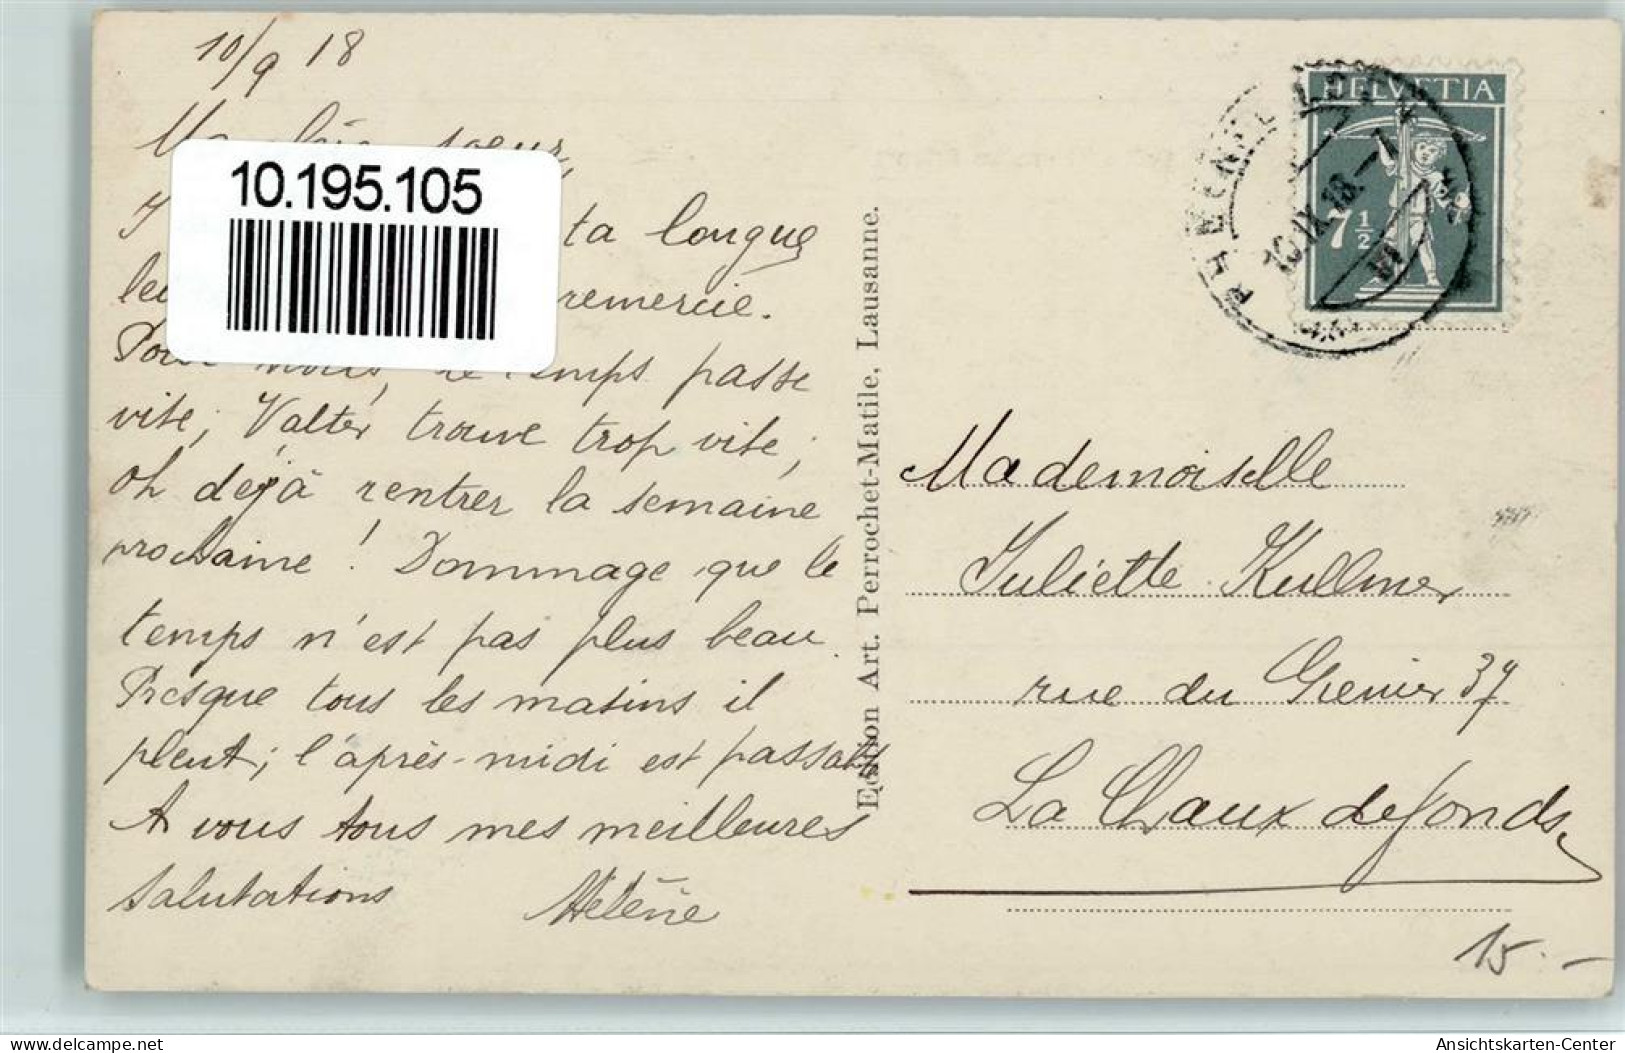 10/9 18
soeur,
10.195.105
ta longue
remercie.
Pour nous, le temps passe
vite; Valter trouve trop vite;
oh déjà rentrer la semaine
prochaine! Dommage que le
temps n'est pas plus beau.
Presque tous les matins il
pleut; l'après-midi est passable
A vous tous mes meilleures
salutations Hélène
Edition Art. Perrochet-Matile, Lausanne.
HELVETIA
7 1/2
10.IX.18.-7
VI
Mademoiselle
Juliette Kullmer
rue du Grenier 37
La Chaux de fonds
15.-
delcampe.net
Ansichtskarten-Center